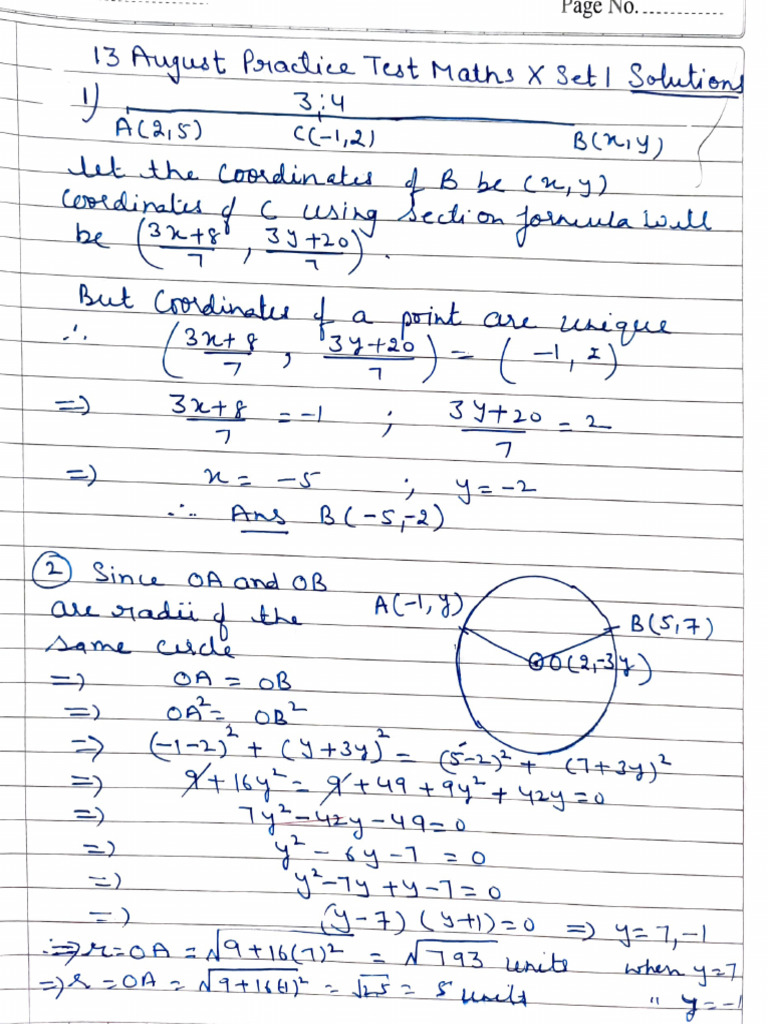 Page No. ...............
13 August Practice Test Maths X Set 1 Solutions
1)
3:4
A(2,5) C(-1,2) B(x,y)
Let the coordinates of B be (x,y)
Coordinates of C using section formula will
be ((3x+8)/7 , (3y+20)/7).
But Coordinates of a point are unique
∴ ((3x+8)/7 , (3y+20)/7) = (-1, 2)
=> (3x+8)/7 = -1 ; (3y+20)/7 = 2
=> x = -5 ; y = -2
∴ Ans B(-5,-2)
② Since OA and OB
are radii of the
same circle
A(-1,y) B(5,7)
O(2,-3y)
=> OA = OB
=> OA² = OB²
=> (-1-2)² + (y+3y)² = (5-2)² + (7+3y)²
=> 9+16y² = 9+49+9y²+42y=0
=> 7y²-42y-49=0
=> y²-6y-7 = 0
=> y²-7y+y-7=0
=> (y-7)(y+1)=0 => y=7,-1
=> r=OA = √9+16(7)² = √793 units when y=7
=> r = OA = √9+16(-1)² = √25 = 5 units " y=-1